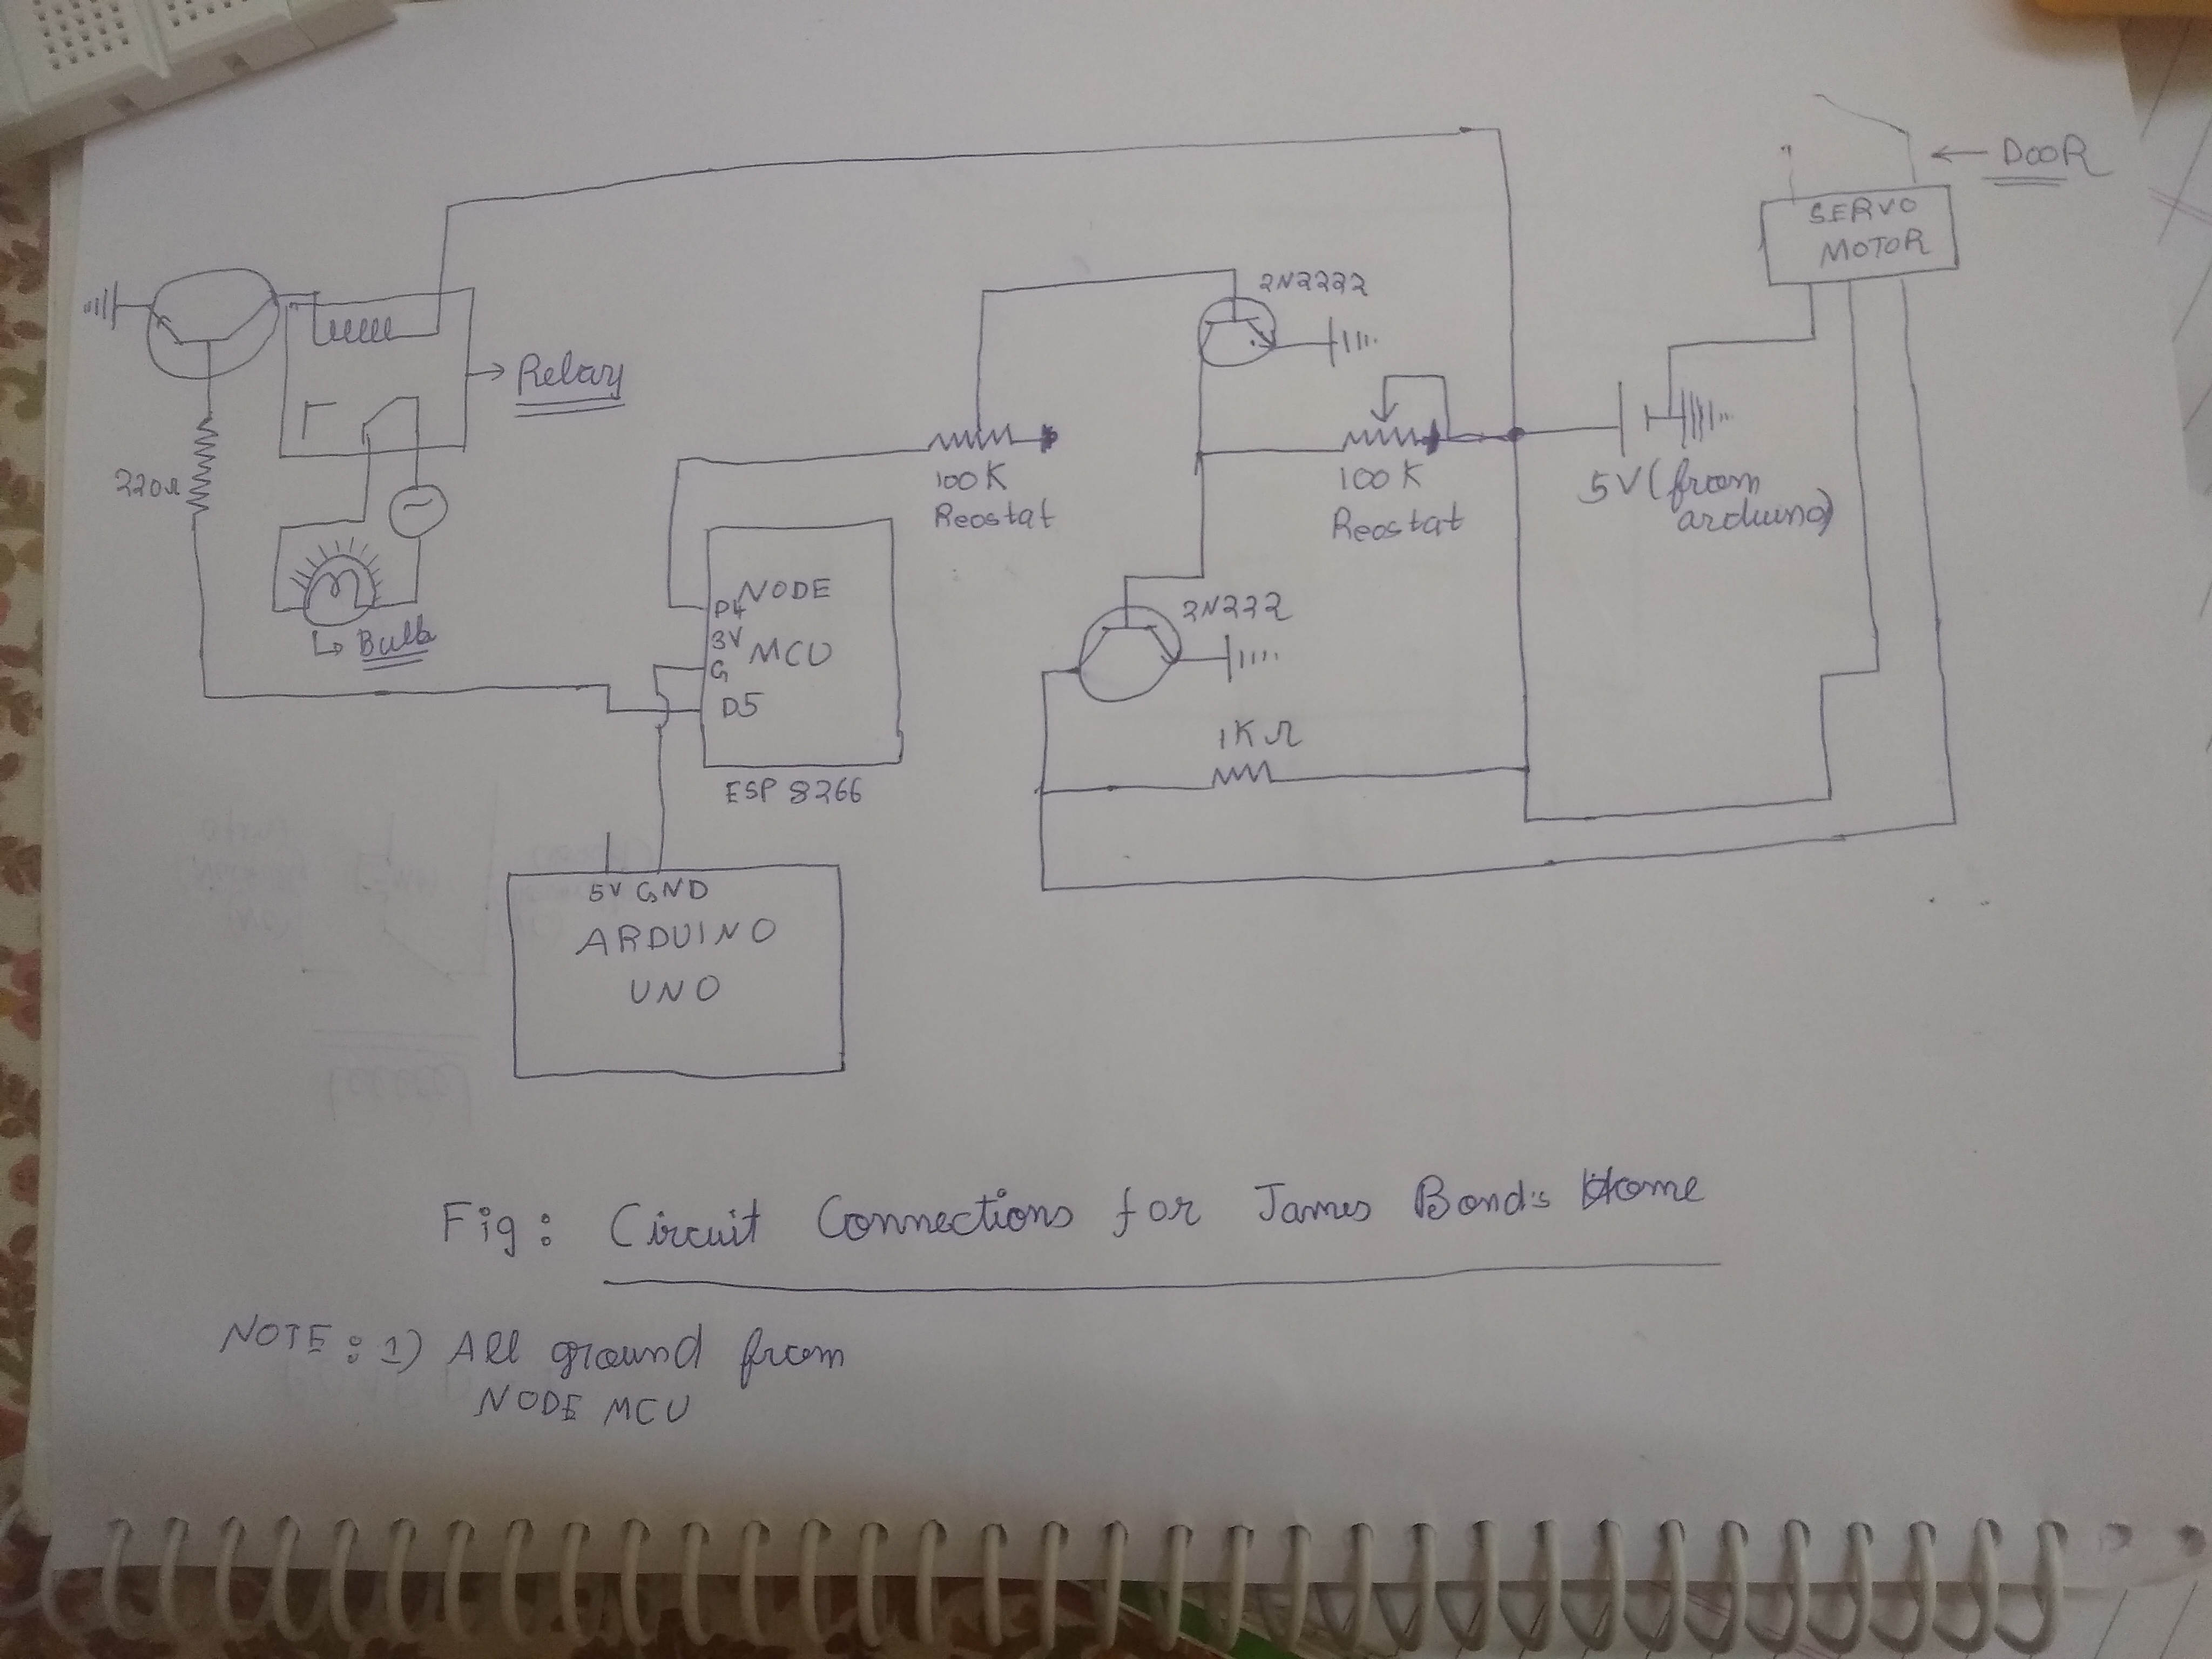 DOOR
SERVO
MOTOR
2N2222
Relay
220Ω
100K
Reostat
100K
Reostat
5V (from
arduino)
Bulb
NODE
MCU
P4
3V
G
D5
ESP 8266
2N222
1KΩ
5V GND
ARDUINO
UNO
Fig: Circuit Connections for James Bond's Home
NOTE: 1) All ground from
NODE MCU